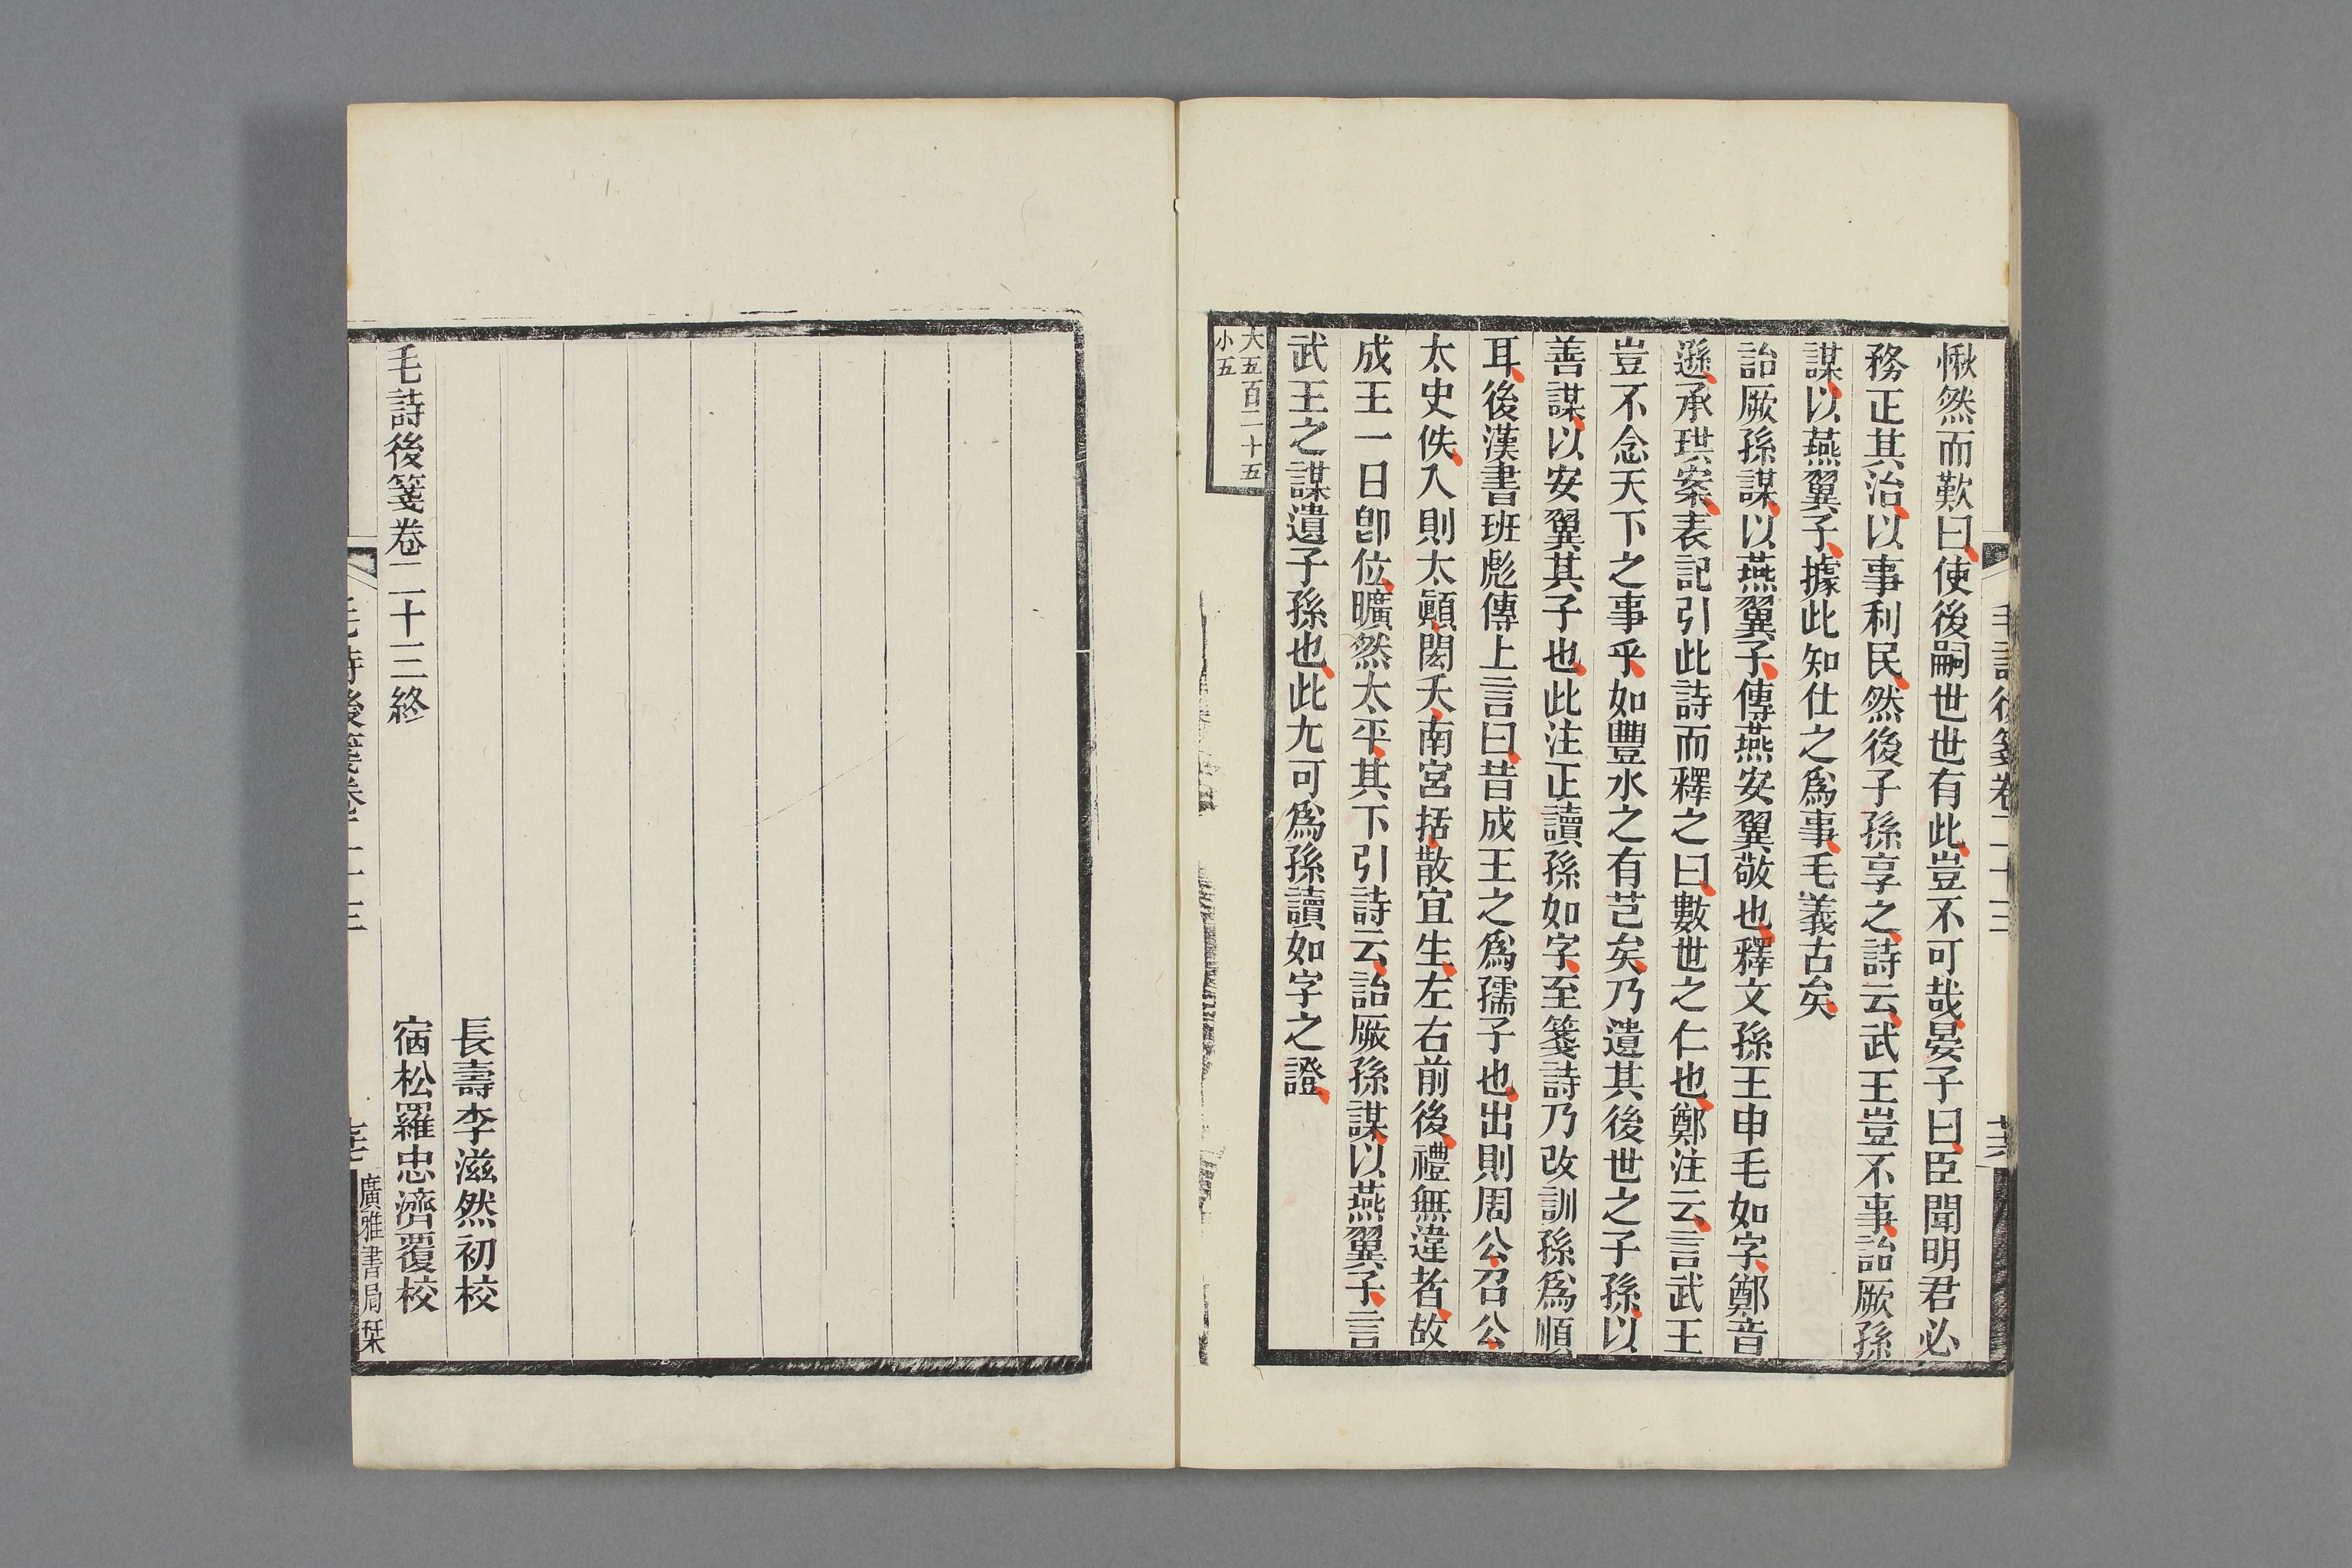 毛詩後箋卷二十三
愀然而歎曰使後嗣世世有此豈不可哉晏子曰臣聞明君必
務正其治以事利民然後子孫享之詩云武王豈不事詒厥孫
謀以燕翼子據此知仕之爲事毛義古矣
詒厥孫謀以燕翼子傳燕安翼敬也釋文孫王申毛如字鄭音
遜承珙案表記引此詩而釋之曰數世之仁也鄭注云言武王
豈不念天下之事乎如豐水之有芑矣乃遺其後世之子孫以
善謀以安翼其子也此注正讀孫如字至箋詩乃改訓孫爲順
耳後漢書班彪傳上言曰昔成王之爲孺子也出則周公召公
太史佚入則太顚閎夭南宮括散宜生左右前後禮無違者故
成王一日卽位曠然太平其下引詩云詒厥孫謀以燕翼子言
武王之謀遺子孫也此尤可爲孫讀如字之證
大五百二十五
小五
長壽李滋然初校
宿松羅忠濟覆校
毛詩後箋卷二十三終
毛詩後箋卷二十三
廣雅書局栞